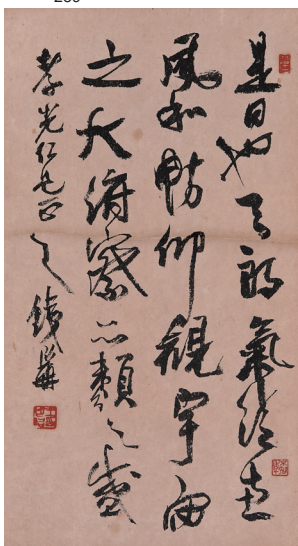 是日也天朗氣清惠
風和暢仰觀宇宙
之大俯察品類之盛
孝光仁兄正之